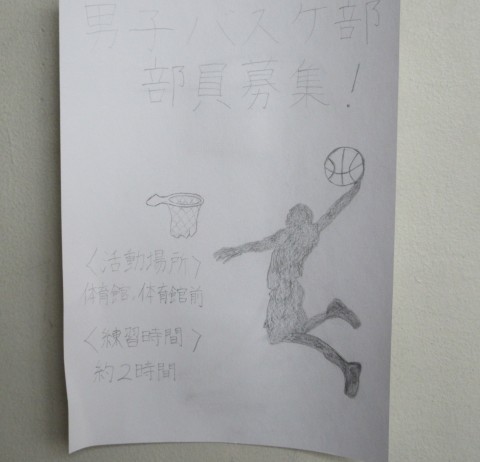 男子バスケ部
部員募集!
〈活動場所〉
体育館、体育館前
〈練習時間〉
約2時間